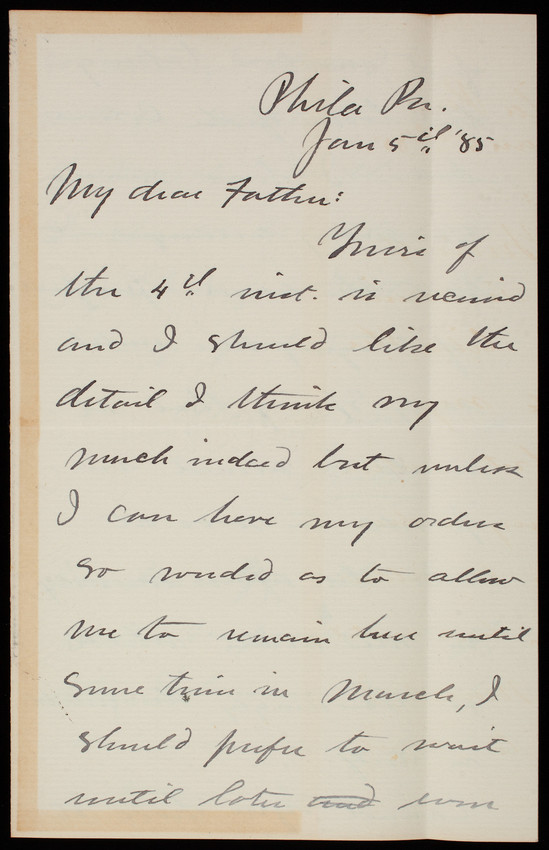 Phila Pa.
Jan 5th '85
My dear Father:
Yours of
the 4th inst. is received
and I should like the
detail I think very
much indeed but unless
I can have my orders
so worded as to allow
me to remain here until
some time in March, I
should prefer to wait
until later and even